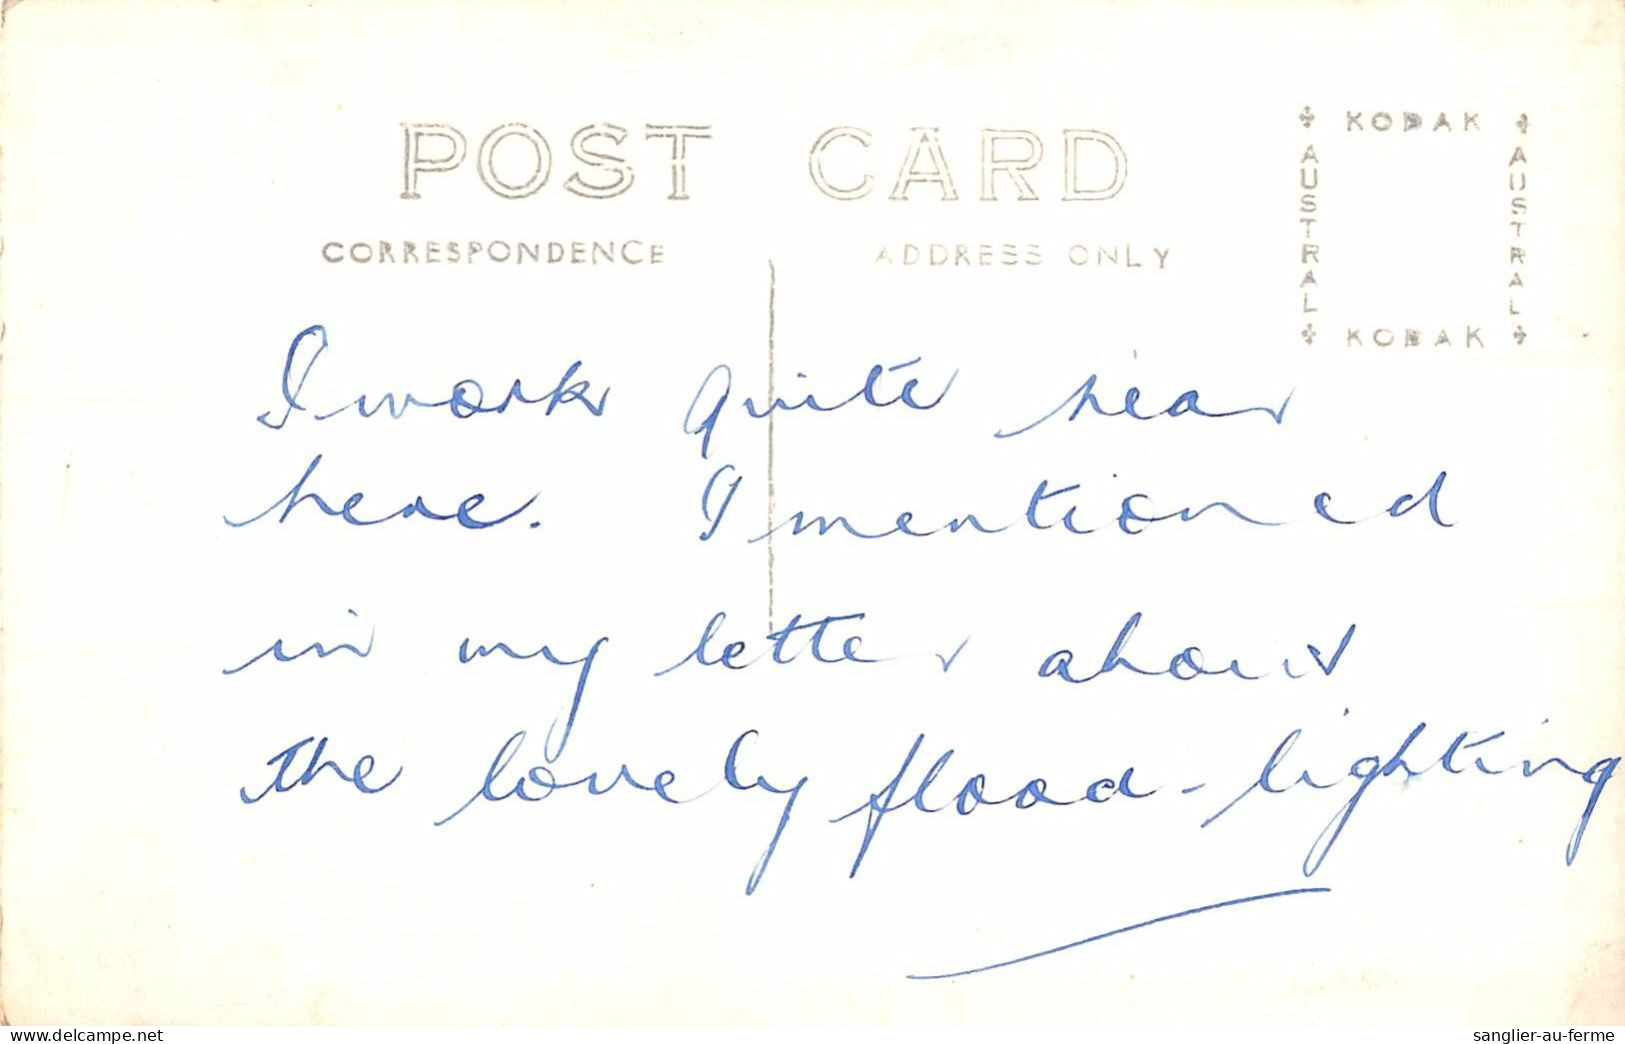 POST CARD
CORRESPONDENCE ADDRESS ONLY
KODAK
AUSTRAL
AUSTRAL
KODAK
I work quite near
here. I mentioned
in my letter about
the lovely flood-lighting
www.delcampe.net
sanglier-au-ferme